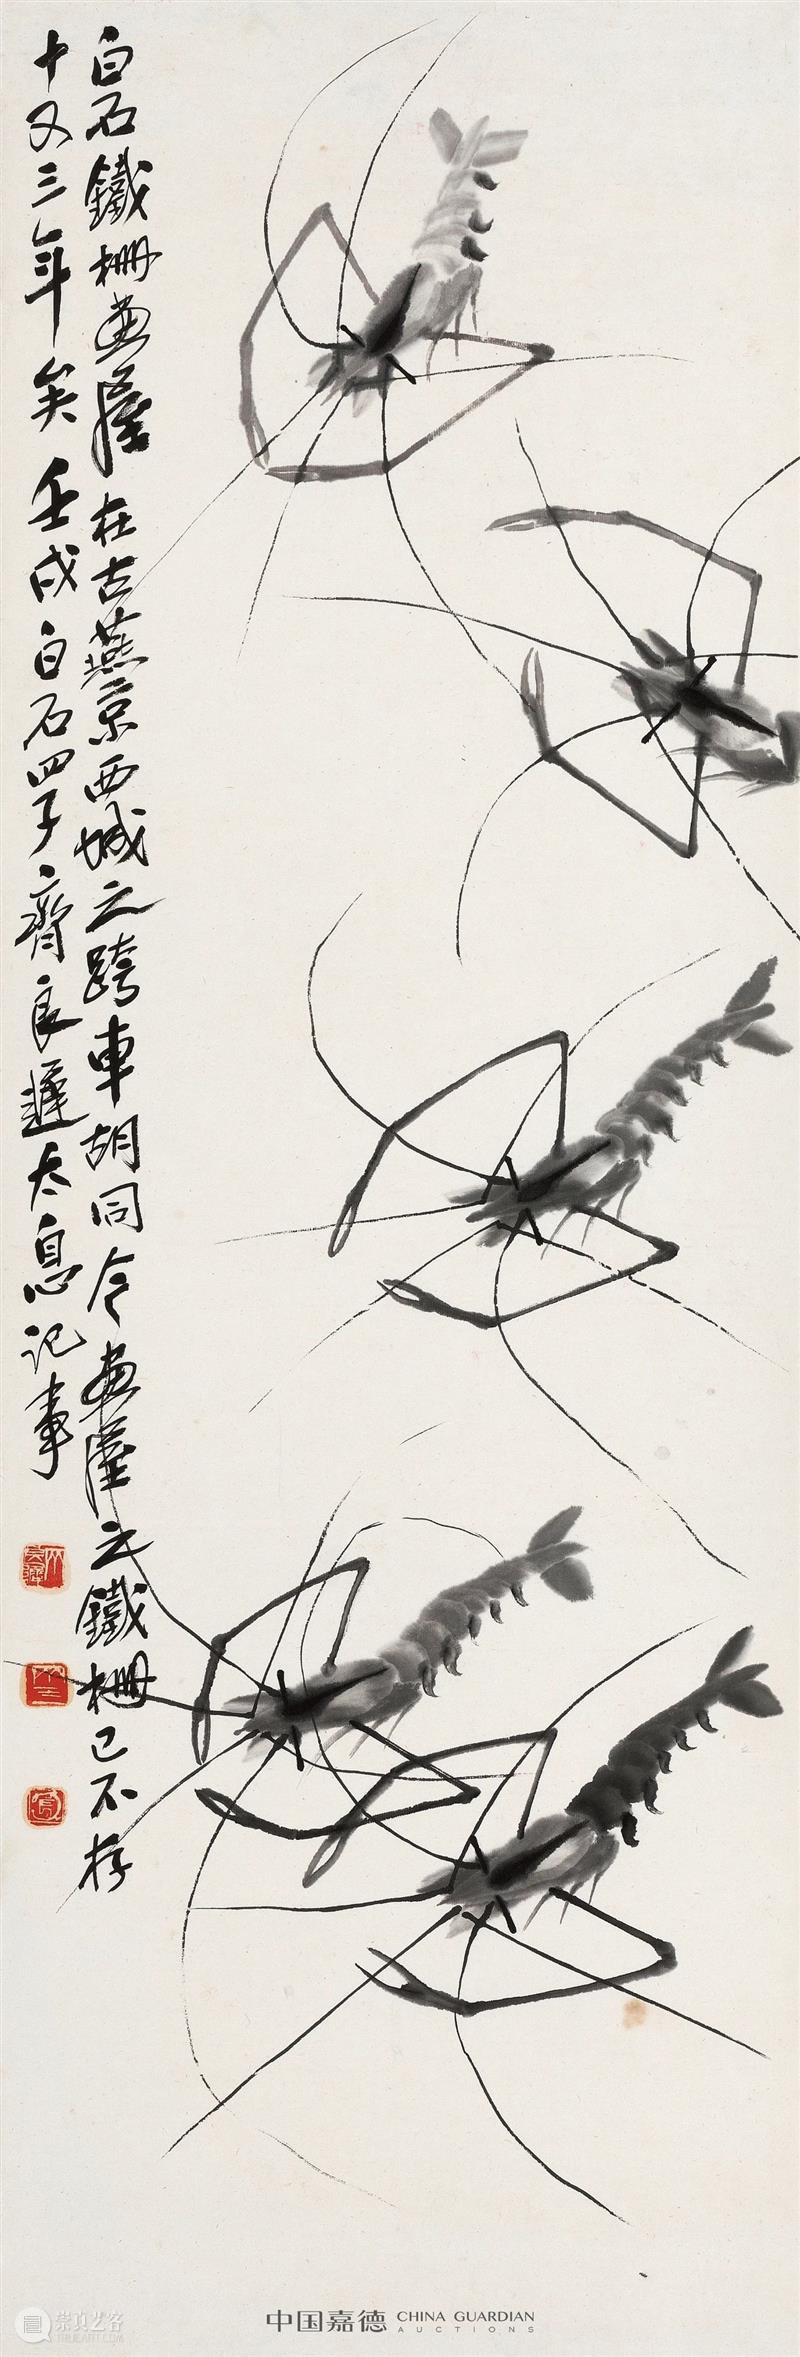 白石鐵柵畫屋在古燕京西城之跨車胡同今畫屋之鐵柵已不存
十又三年矣壬戌白石四子齊良遲太息記事
中国嘉德 CHINA GUARDIAN
AUCTIONS
崇真艺客